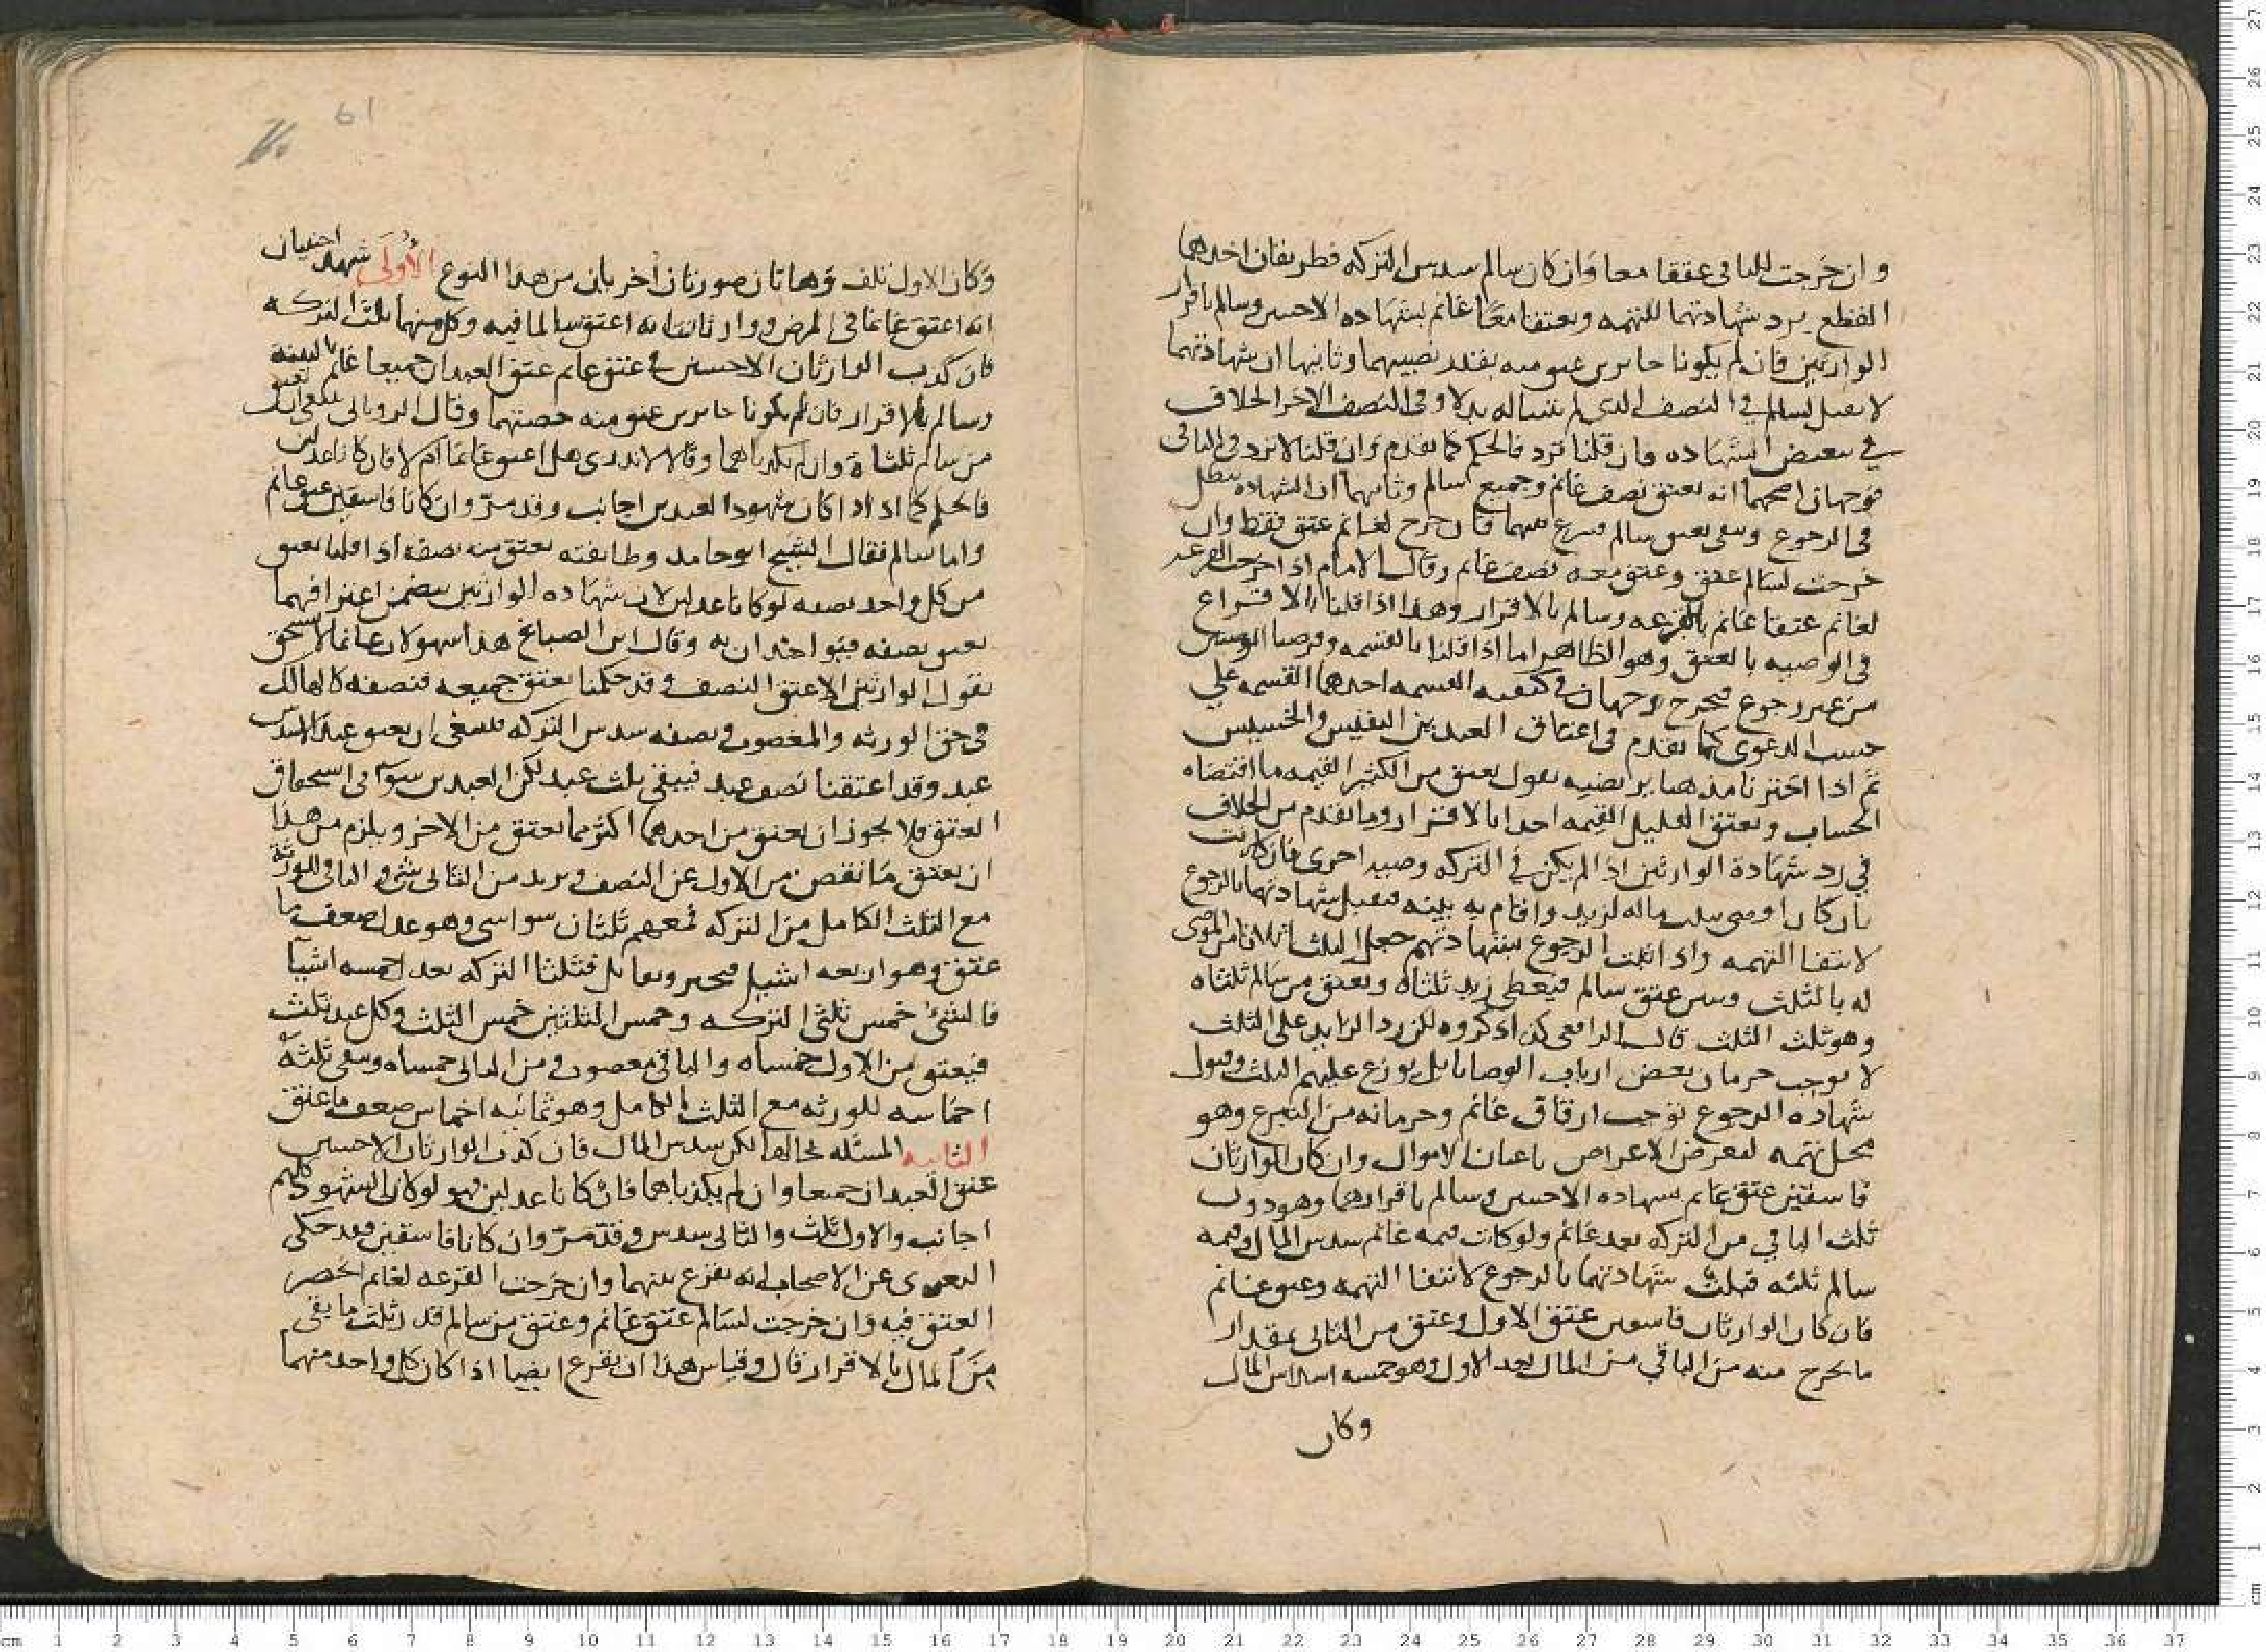 وان خرجت للثاني عتقا معا وان كان سالم سدس التركه فطريقان احدهما
القطع يرد شهادتهما للتهمه ويعتقا معًا غانم بشهاده الاجنبين وسالم باقرار
الوارثين فان لم يكونا حايزين عتق منه بقدر نصيبهما وثانيها ان شهادتهما
لا تقبل لسالم في النصف الذي لم يثبتا له بدلا وفي النصف الاخر الخلاف
في تبعيض الشهاده فان قلنا ترد فالحكم كما تقدم وان قلنا لا ترد في الباقي
فوجهان اصحهما انه يعتق نصف غانم وجميع سالم وثانيهما ان الشهاده تبطل
في الرجوع وتبقى بعتق سالم فيقرع بينهما فان خرج لغانم عتق فقط وان
خرجت لسالم عتق وعتق معه نصف غانم وقال الامام اذا خرجت القرعه
لغانم عتقا غانم بالقرعه وسالم بالاقرار وهذا اذا قلنا بالاقراع
في الوصيه بالعتق وهو الظاهر اما اذا قلنا بالقسمه وفرضنا الوصيتين
من غير رجوع فيخرج وجهان في كيفيه القسمه احدهما القسمه على
حسب الدعوى كما تقدم في اعتاق العبدين النفيس والخسيس
ثم اذا اخترنا مذهبا برايضيه نقول يعتق من الكثير القيمه ما اقتضاه
الحساب ويعتق القليل القيمه احدا بالاقرار وما تقدم من الخلاف
في رد شهادة الوارثين اذا لم يكن في التركه وصيه اخرى فان كانت
بان كان اوصى بثلث ماله لزيد واقام به بينه فتقبل شهادتهما بالرجوع
لانتفا التهمه واذا اثبت الرجوع بشهادتهم جعل الثلث اثلاثا من الموصى
له بالثلث وبين عتق سالم فيعطى زيد ثلثاه ويعتق من سالم ثلثاه
وهو ثلث الثلث قال الرافعي كذا ذكروه لكن رد الزايد على الثلث
لا يوجب حرمان بعض ارباب الوصايا بل يوزع عليهم الثلث وقبول
شهاده الرجوع توجب ارقاق غانم وحرمانه من التبرع وهو
محل تهمه لتعرض الاعراض باعيان الاموال وان كان الوارثان
فاسقين عتق غانم بشهاده الاجنبين وسالم باقرارهما وهو دون
ثلث الباقي من التركه بعد غانم ولو كانت قيمه غانم سدس المال وقيمه
سالم ثلثه قبلت شهادتهما بالرجوع لانتفا التهمه وعتق غانم
فان كان الوارثان فاسقين عتق الاول وعتق من الثاني بمقدار
ما يخرج منه من الباقي من المال بعد الاول وهو خمسه اسداس المال
وكان
61
وكان الاول تلف وهاتان صورتان اخريان من هذا النوع الأولى شهد اجنبيان
انه اعتق غانما في المرض ووارثان انه اعتق سالما فيه وكل منهما ثلث التركه
فان كذب الوارثان الاجنبين في عتق غانم عتق العبدان جميعا غانم بالبينه
وسالم بالاقرار فان لم يكونا حايزين عتق منه حصتهما وقال الروياني ينبغي ان يعتق
من سالم ثلثاه وان لم يكذباهما وقالا لا ندري هل اعتق غانما ام لا فان كانا عدلين
فالحكم كما اذا كان شهود العبدين اجانب وقد مرّ وان كانا فاسقين عتق غانم
واما سالم فقال الشيخ ابو حامد وطايفته يعتق منه نصفه اذا قلنا يعتق
من كل واحد نصفه لو كانا عدلين لان شهاده الوارثين تتضمن اعترافهما
بعتق نصفه فيؤاخذان به وقال ابن الصباغ هذا سهو لان غانما لا يستحق
بقول الوارثين الا عتق النصف وقد حكمنا بعتق جميعه فنصفه كالهالك
في حق الورثه والمغصوب ونصفه سدس التركه فينبغي ان يعتق عبد الا سدس
عبد وقد اعتقنا نصف عبد فيبقى ثلث عبد لكن العبدين سوا في استحقاق
العتق فلا يجوز ان يعتق من احدهما اكثر مما يعتق من الاخر ويلزم من هذا
ان يعتق ما نقص من الاول عن النصف ونزيد من الثاني شي والباقي للورثة
مع الثلث الكامل من التركه فمعهم ثلثان سوا شي وهو عدل ضعف ما
عتق وهو اربعه اشيا فيجبر ويقابل فثلثا التركه بعد خمسه اشيا
فالشيء خمس ثلثي التركه وخمس الثلثين خمس الثلث وكل عبد ثلث
فيعتق من الاول خمساه والباقي مغصوب ومن الثاني خمساه وتبقى ثلثه
اخماسه للورثه مع الثلث الكامل وهو ثمانيه اخماس ضعف ما عتق
الثانيه المسئله بحالها لكن سدس المال فان كذب الوارثان الاجنبين
عتق العبدان جميعا وان لم يكذباهما فان كانا عدلين فهو لو كان الشهود كلهم
اجانب والاول ثلث والثاني سدس وقد مرّ وان كانا فاسقين فقد حكى
البغوي عن الاصحاب انه يقرع بينهما وان خرجت القرعه لغانم انحصر
العتق فيه وان خرجت لسالم عتق غانم وعتق من سالم قدر ثلث ما بقي
من المال بالاقرار قال وقياس هذا ان يقرع ايضا اذا كان كل واحد منهما